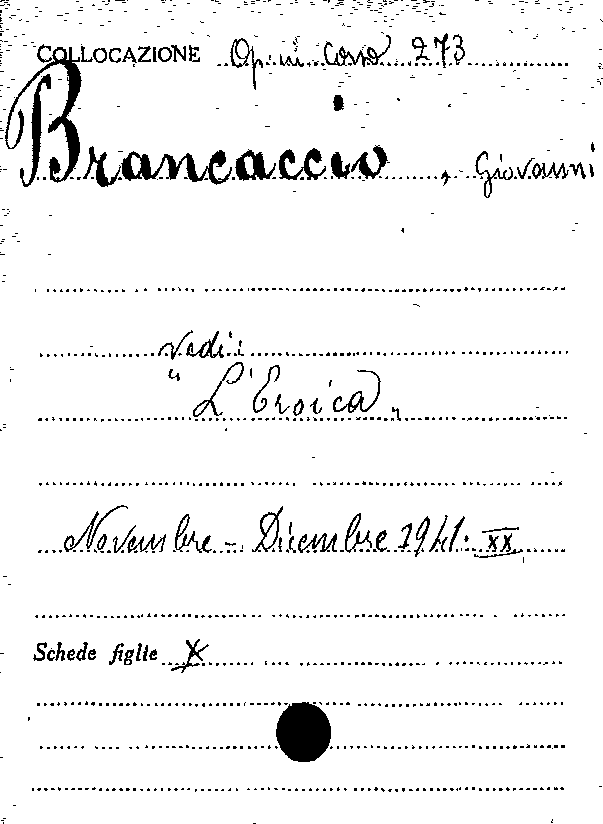 COLLOCAZIONE Op. in corso 273
Brancaccio, Giovanni
vedi:
"L'Eroica"
Novembre - Dicembre 1941. XX
Schede figlie X